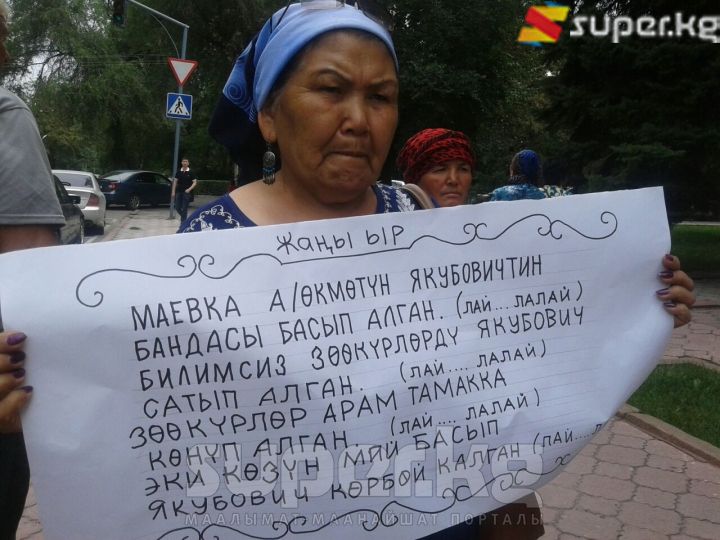 super.kg
Жаңы ыр
МАЕВКА А/ӨКМӨТҮН ЯКУБОВИЧТИН
БАНДАСЫ БАСЫП АЛГАН. (ЛАЙ... ЛАЛАЙ)
БИЛИМСИЗ ЗӨӨКҮРЛӨРДҮ ЯКУБОВИЧ
САТЫП АЛГАН. (ЛАЙ.... ЛАЛАЙ)
ЗӨӨКҮРЛӨР АРАМ ТАМАККА
КӨНҮП АЛГАН. (ЛАЙ.... ЛАЛАЙ)
ЭКИ КӨЗҮН МАЙ БАСЫП
ЯКУБОВИЧ КӨРБӨЙ КАЛГАН (ЛАЙ...
super.kg
МААЛЫМАТ-МААНАЙШАТ ПОРТАЛЫ